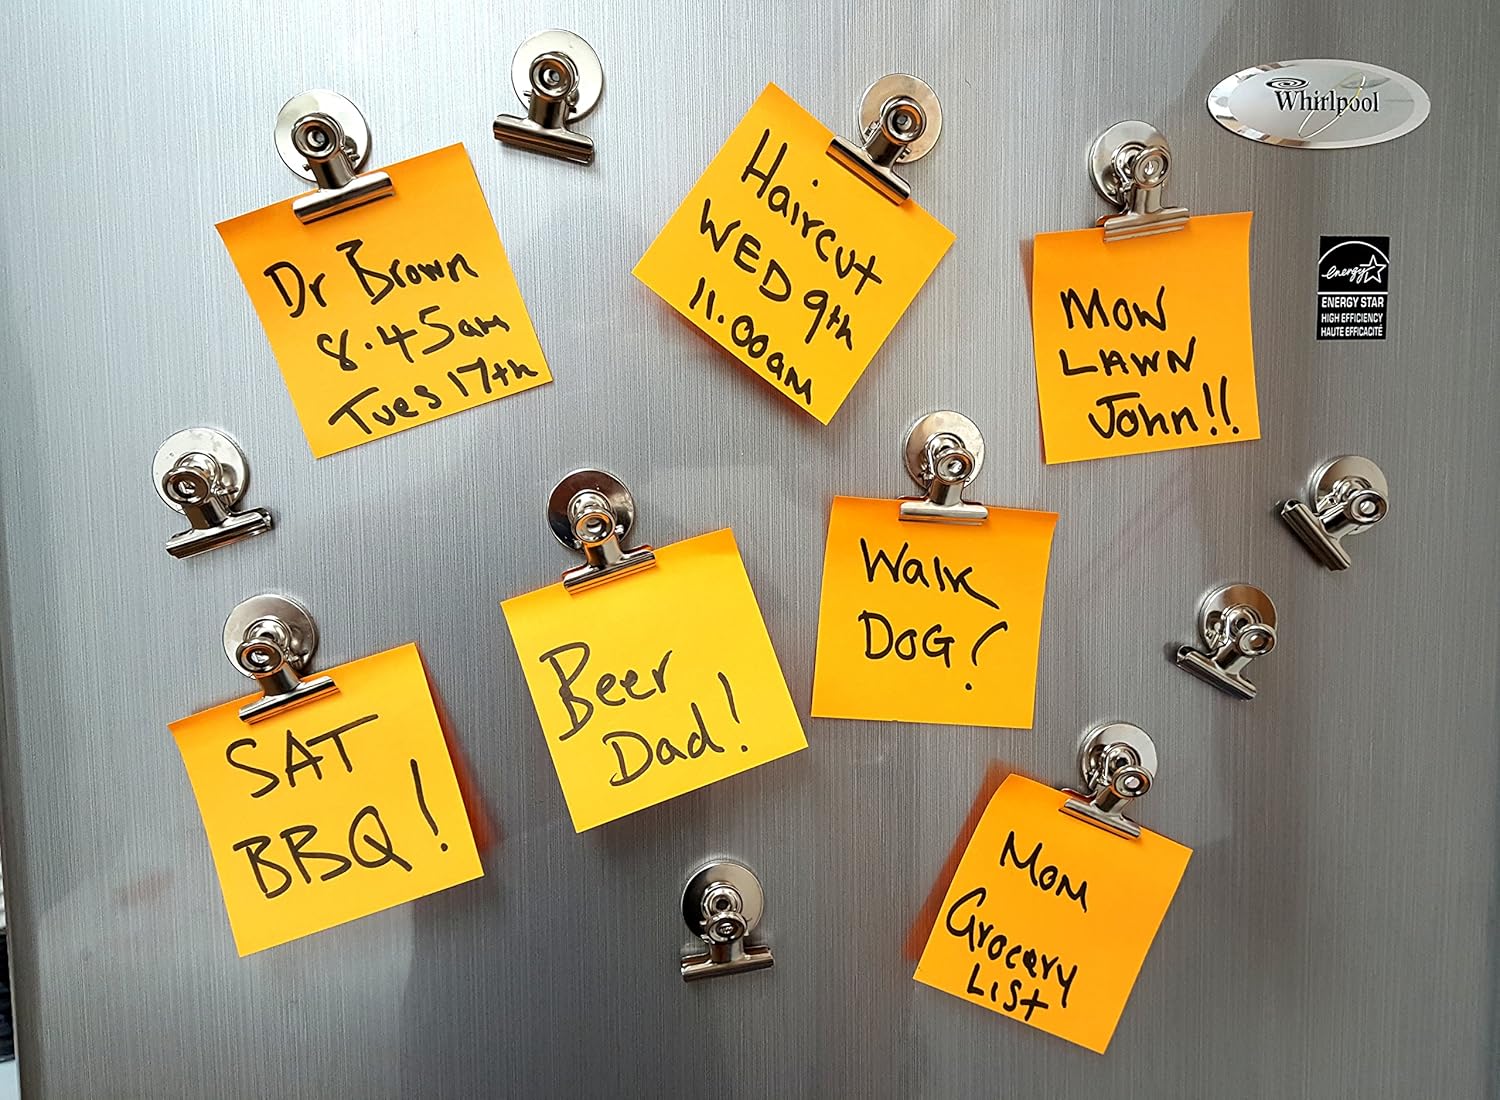 Dr Brown
8.45am
Tues 17th
Haircut
WED 9th
11.00am
Mow
LAWN
John!!
Whirlpool
energy
ENERGY STAR
HIGH EFFICIENCY
HAUTE EFFICACITÉ
SAT
BBQ!
Beer
Dad!
Walk
DOG?
Mom
Grocery
List